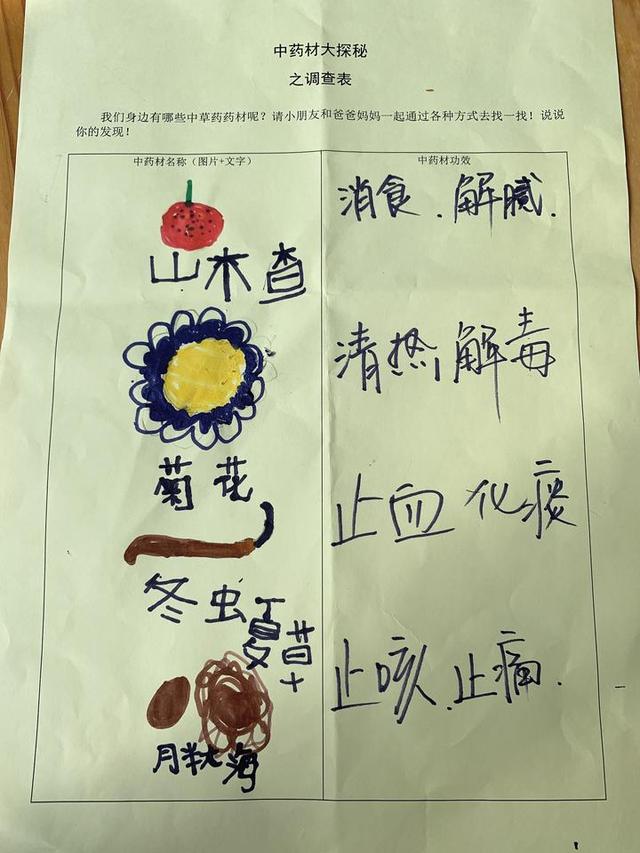 中药材大探秘
之调查表
我们身边有哪些中草药药材呢？请小朋友和爸爸妈妈一起通过各种方式去找一找！说说
你的发现！
中药材名称（图片+文字）
中药材功效
山木查
消食.解腻.
菊花
清热解毒
冬虫夏草
止血化痰
胖大海
止咳.止痛.